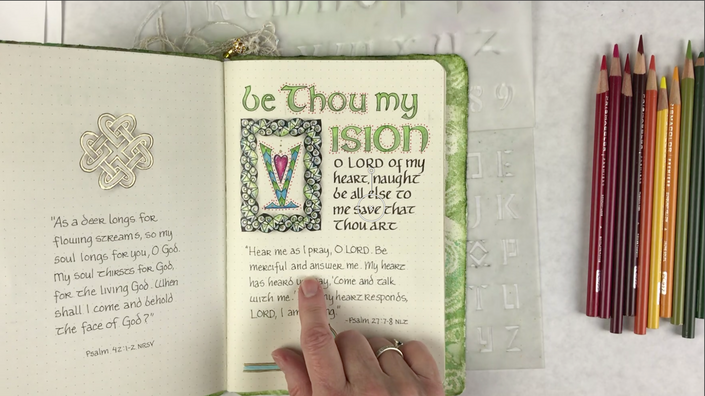 "As a deer longs for
flowing streams, so my
soul longs for you, O God.
My soul thirsts for God,
for the living God. When
shall I come and behold
the face of God?"
Psalm 42:1-2 NRSV
be Thou my
Vision
O LORD of my
heart, naught
be all else to
me save that
Thou art
"Hear me as I pray, O LORD. Be
merciful and answer me. My heart
has heard 'Come and talk
with me. my heart responds,
LORD, I
-Psalm 27:7-8 NLT